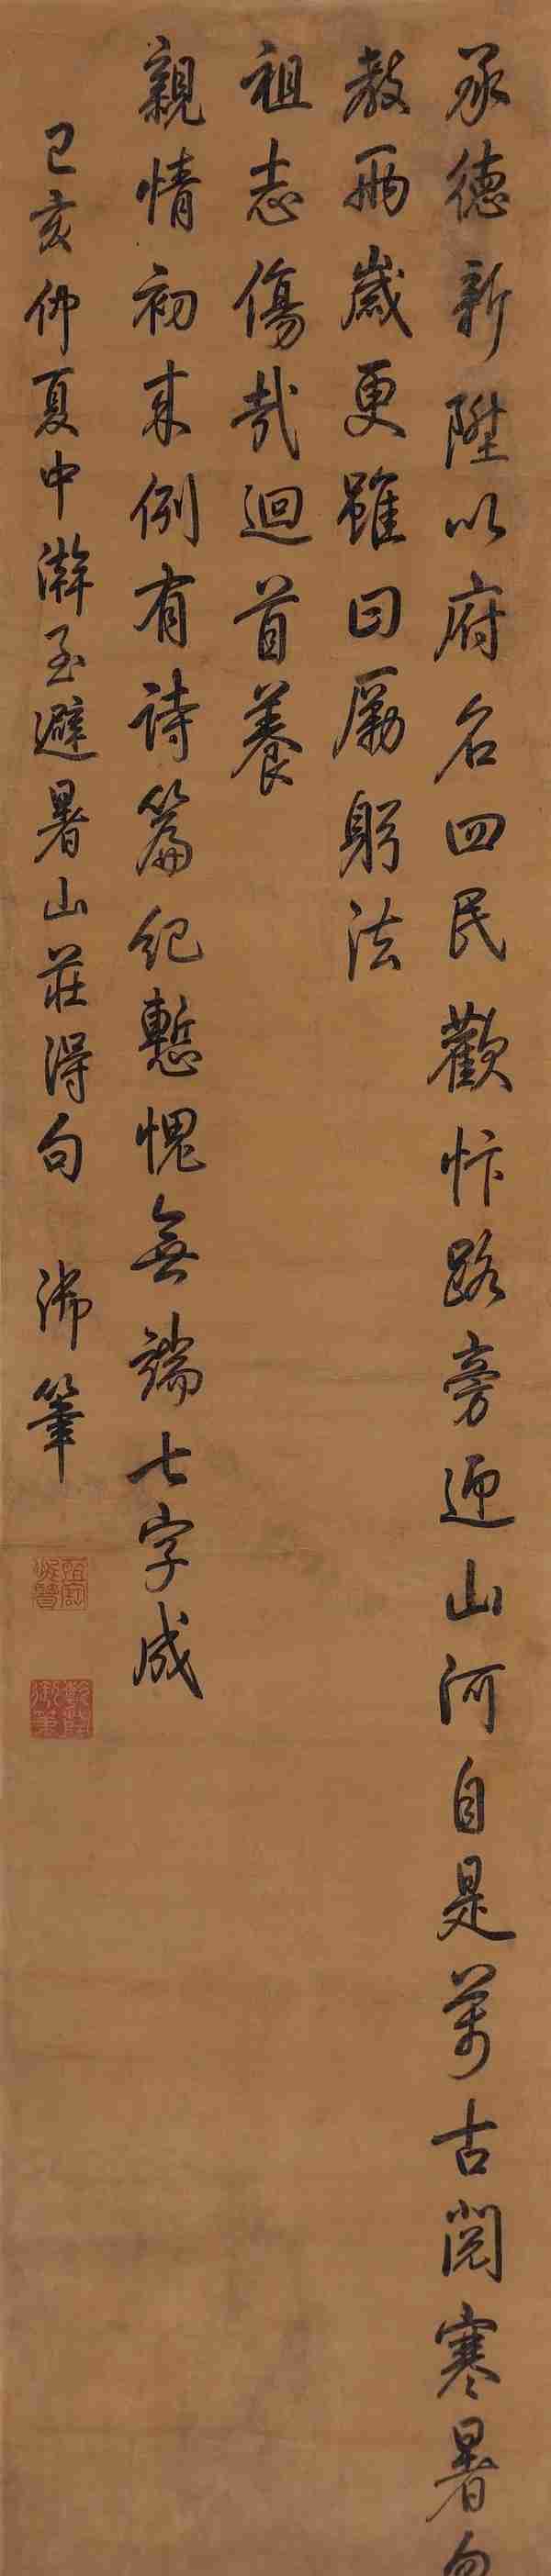 承德新陞以府名四民歡忭路旁迎山河自是萬古閱寒暑匆
教兩歲更雖曰勵躬法
祖志傷哉迴首養
親情初來例有詩篇紀慙愧無端七字成
己亥仲夏中澣至避暑山莊得句 御筆
乾隆
御筆